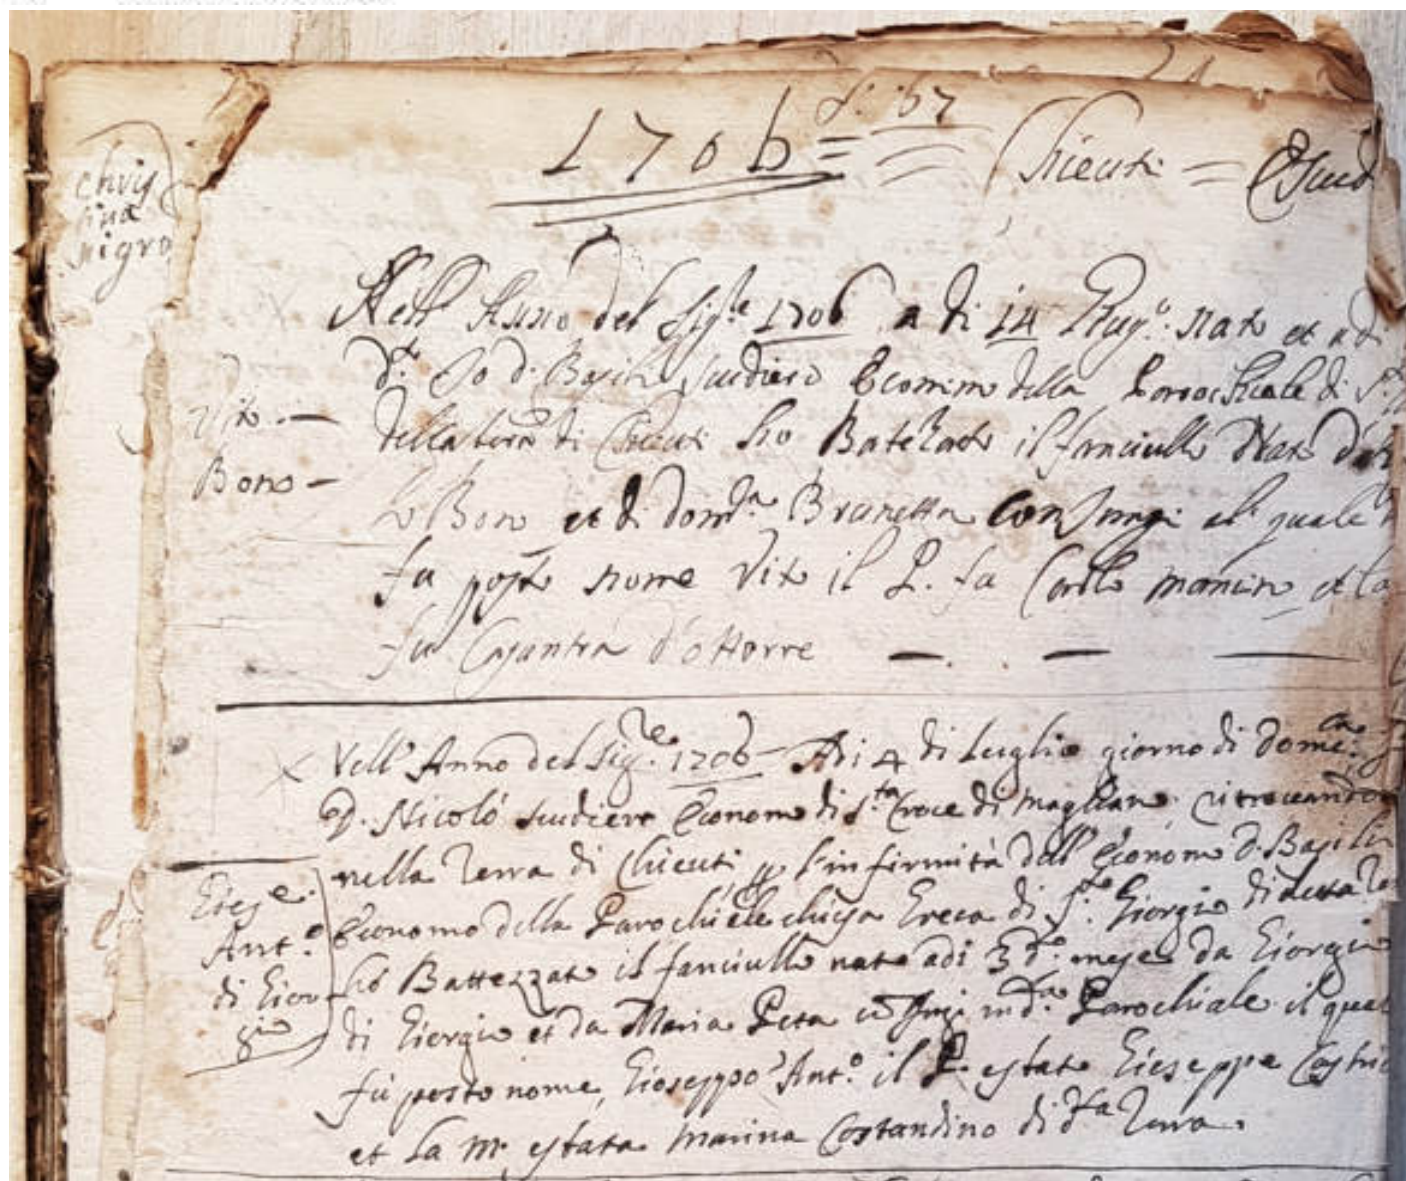 1706 = f. 67
Chieuti =
Chris
tina
nigro
Nell Anno del Sig.re 1706 a di 14 Giug.o nat et adi
d.to Io d. Basili Scudiero Econimo della Parocchiale di S.
Vito
della terra di Chieuti ho Batezato il fanciullo Nato
Bono
lo Bono et di Dom.ca Brunetta Coniungi al quale
fu posto nome Vito il P. fu Carlo mancin et la
fu d'ottorre
Nell' Anno del Sig.re 1706 Adi 4 di Luglio giorno di Dome.ca
D. Nicolò Scudiero Econom di S.ta Croce di Magliano, ritrovando
nella Terra di Chieuti p l'infirmità dell' Econom D. Basilio
Giese.
Economo della Parochiale chiesa Greca di S.to Giorgio di detta Te
Ant.o
hò Battezzato il fanciullo nato adi 3 d.to mese da Giorgio
di Gior
di Giorgio et da Maria Peta in d.ta Parochiale il qual
gio
fù posto nome, Gioseppo Ant.o il P. estato Gieseppe Castrio
et la M. estata Marina Costandino di d.ta Terra.